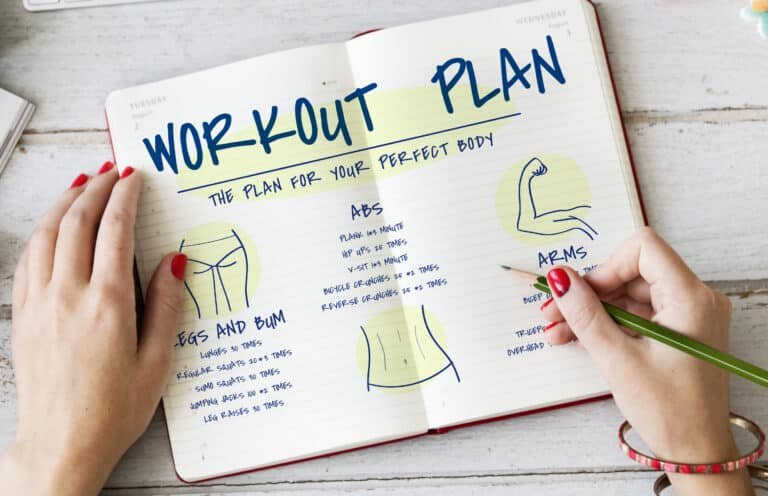 TUESDAY
August
WEDNESDAY
August
WORKOUT PLAN
THE PLAN FOR YOUR PERFECT BODY
LEGS AND BUM
LUNGES 30 TIMES
REGULAR SQUATS 20 *3 TIMES
SUMO SQUATS 30 TIMES
JUMPING JACKS 100 *2 TIMES
LEG RAISES 30 TIMES
ABS
PLANK 1*3 MINUTE
HIP UPS 20 TIMES
V-SIT 1*3 MINUTE
BICYCLE CRUNCHES 20 *2 TIMES
REVERSE CRUNCHES 20 *2 TIMES
ARMS
BICEP
TRICEPS
OVERHEAD